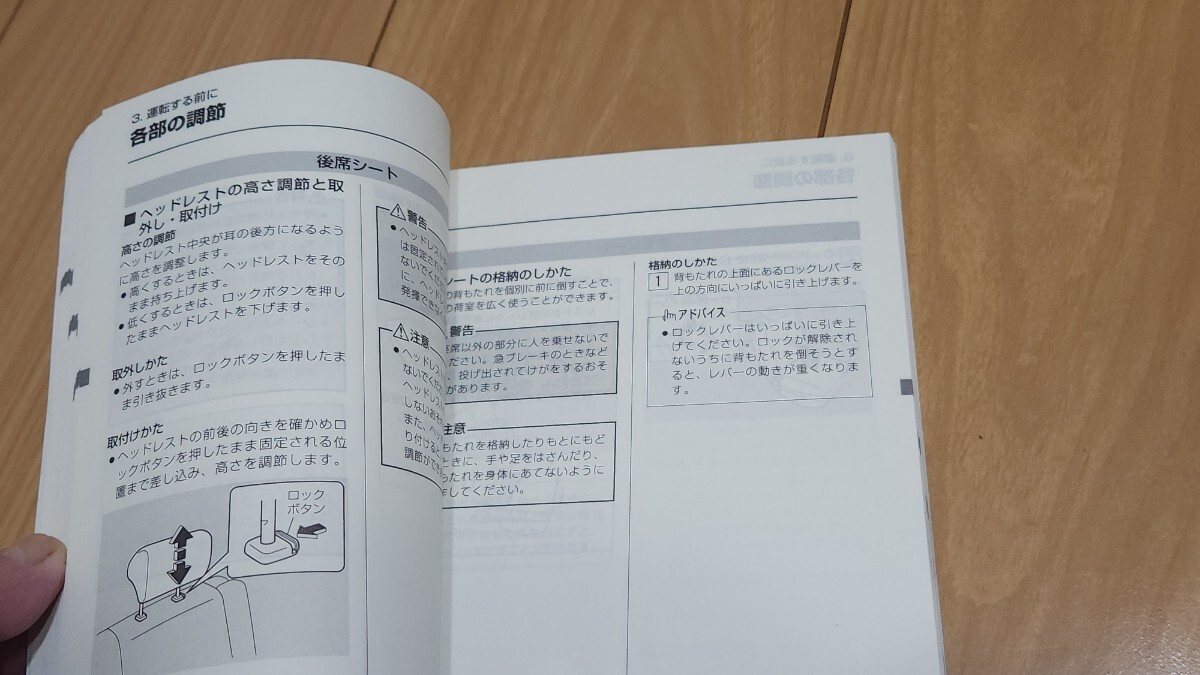 3. 運転する前に
各部の調節
後席シート
■ ヘッドレストの高さ調節と取
外し・取付け
高さの調節
ヘッドレスト中央が耳の後方になるよう
に高さを調整します。
● 高くするときは、ヘッドレストをその
まま持ち上げます。
● 低くするときは、ロックボタンを押し
たままヘッドレストを下げます。
取外しかた
● 外すときは、ロックボタンを押したま
ま引き抜きます。
取付けかた
● ヘッドレストの前後の向きを確かめロ
ックボタンを押したまま固定される位
置まで差し込み、高さを調節します。
ロック
ボタン
警告
● ヘッドレス
は固定され
ないでくだ
に、ヘッド
発揮できな
注意
● ヘッドレス
ないでくだ
ヘッドレス
しないおそ
また、ヘッ
り付ける
調節ができ
シートの格納のしかた
り背もたれを個別に前に倒すことで、
の荷室を広く使うことができます。
警告
席以外の部分に人を乗せないで
ださい。急ブレーキのときなど
、投げ出されてけがをするおそ
があります。
注意
もたれを格納したりもとにもど
ときに、手や足をはさんだり、
もたれを身体にあてないように
してください。
格納のしかた
1 背もたれの上面にあるロックレバーを
上の方向にいっぱいに引き上げます。
アドバイス
● ロックレバーはいっぱいに引き上
げてください。ロックが解除され
ないうちに背もたれを倒そうとす
ると、レバーの動きが重くなりま
す。